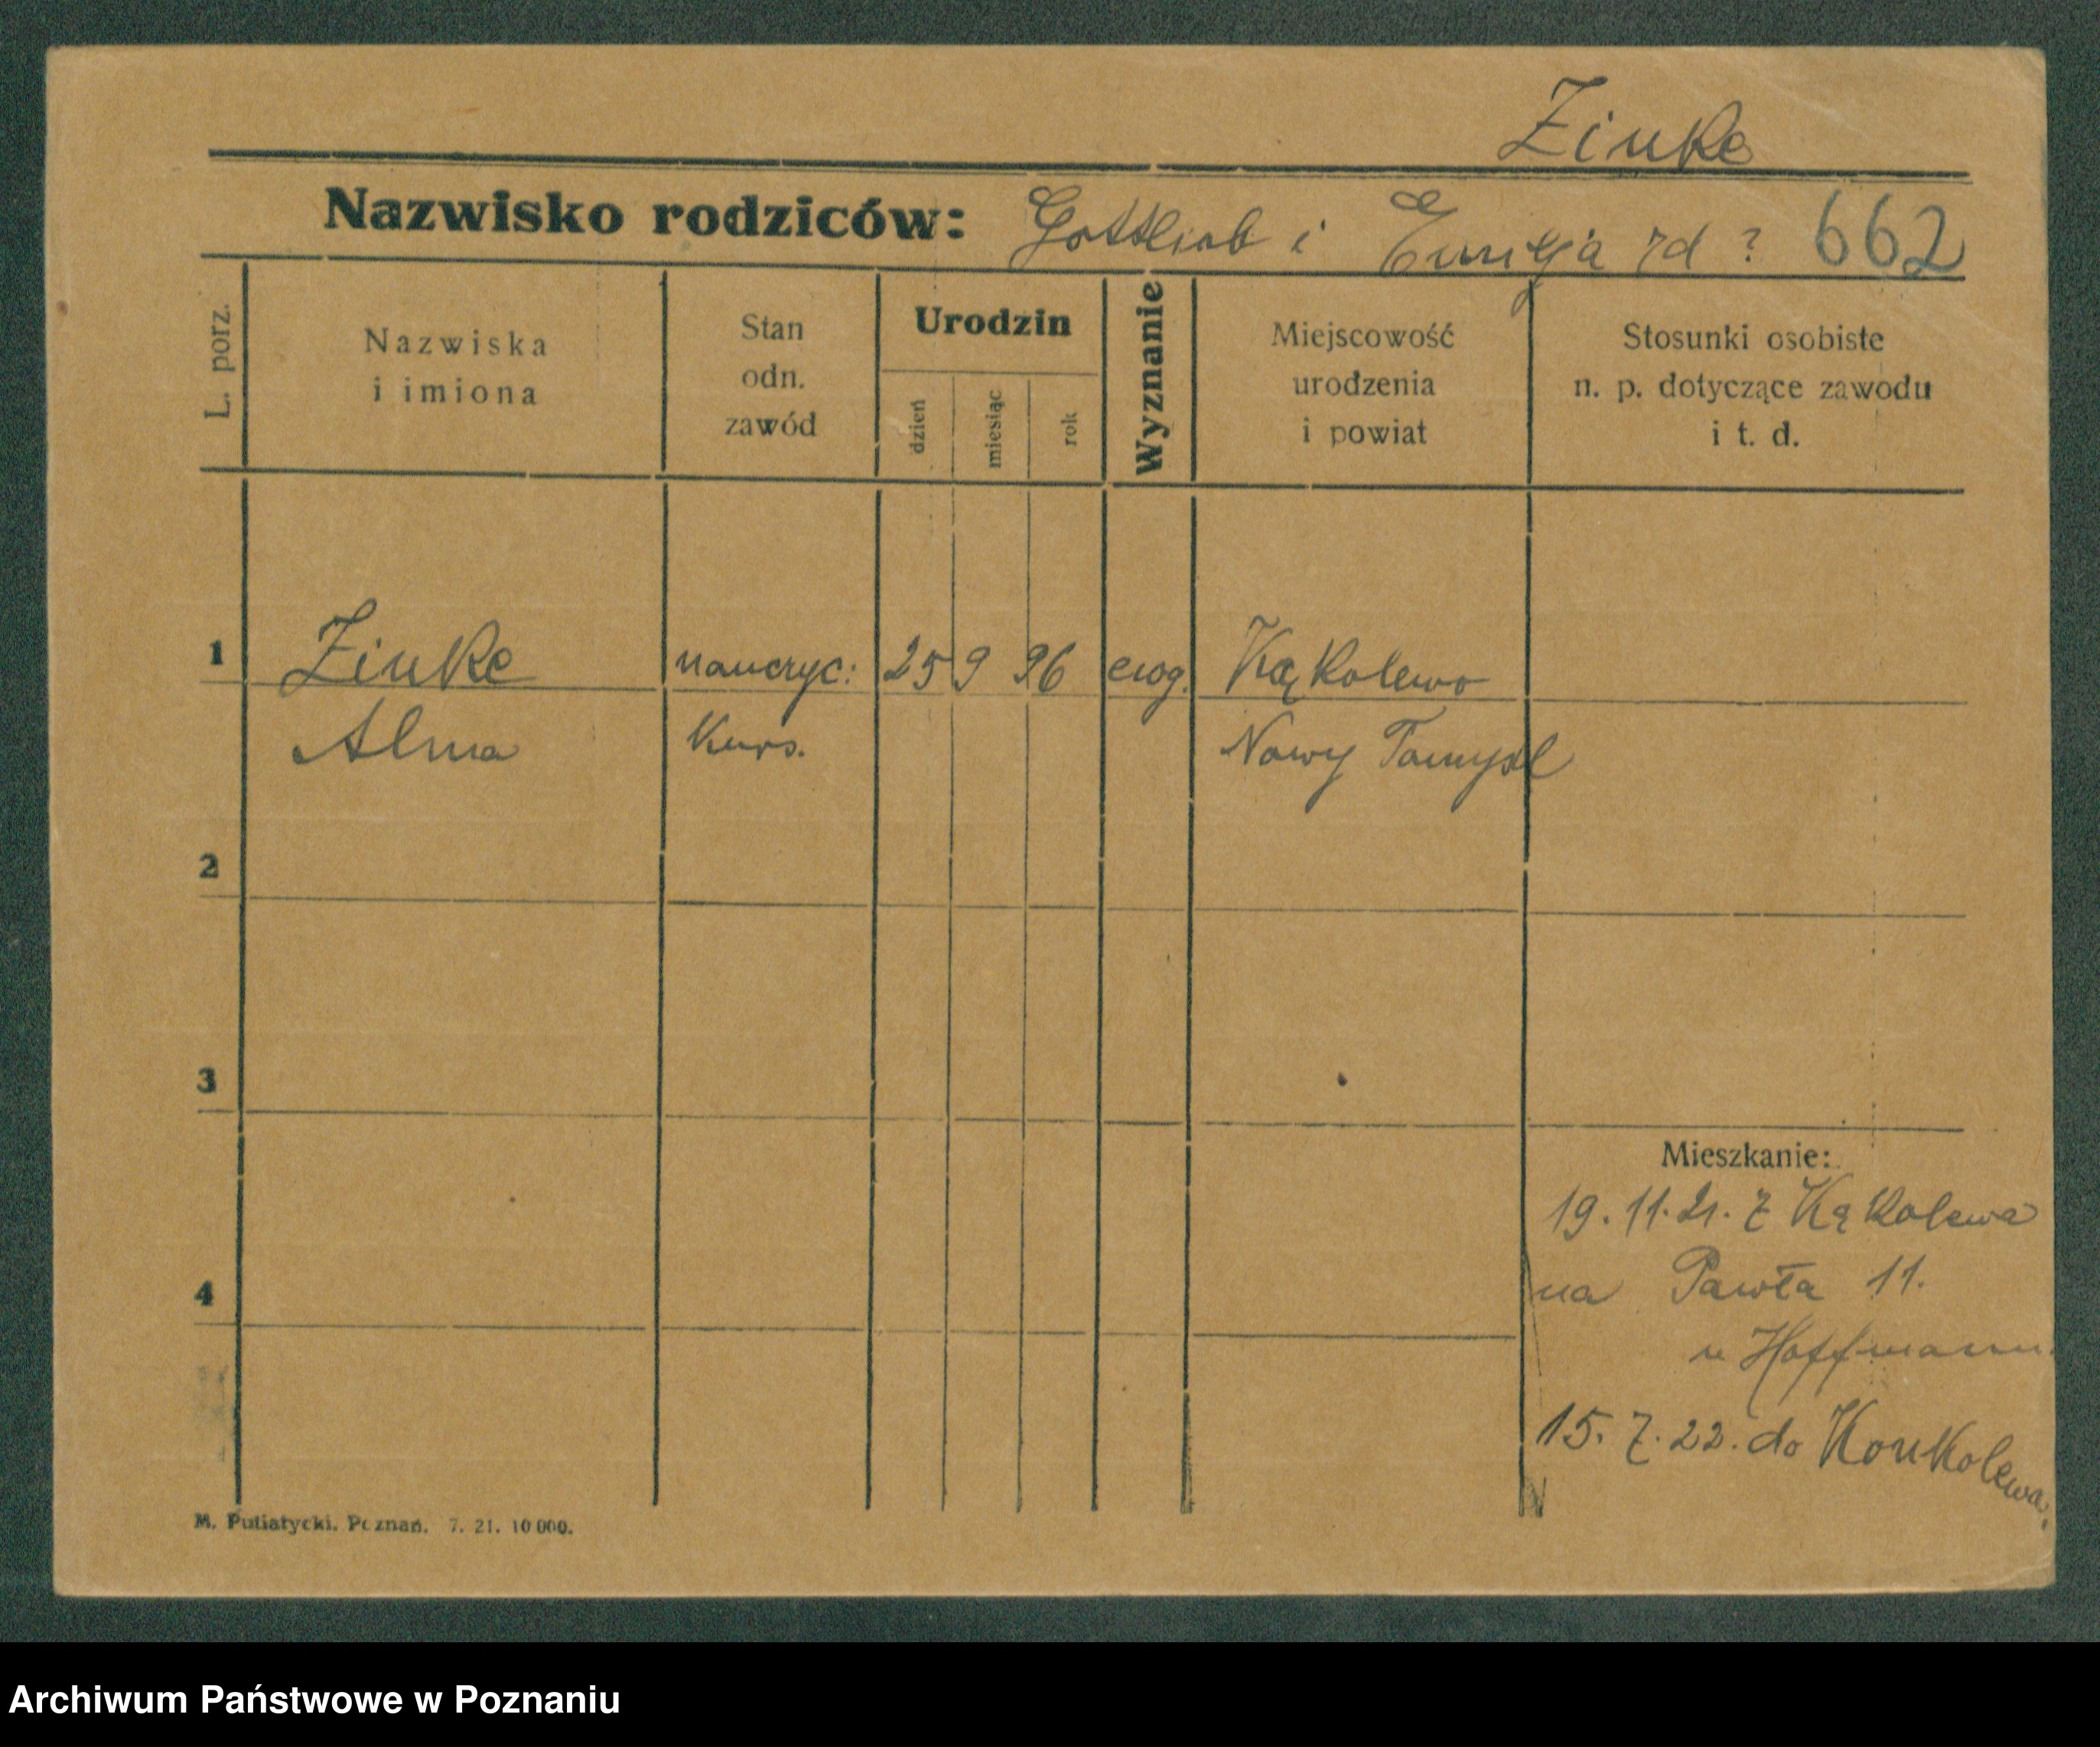 Zinke
Nazwisko rodziców: Gottlieb i Emilja zd ? 662
L. porz.
Nazwiska
i imiona
Stan
odn.
zawód
Urodzin
dzień
miesiąc
rok
Wyznanie
Miejscowość
urodzenia
i powiat
Stosunki osobiste
n. p. dotyczące zawodu
i t. d.
1 Zinke nauczyc: 25 9 96 ewg. Kąkolewo
Alma Kurs. Nowy Tomysl
2
3
Mieszkanie:
19. 11. 21. z Kąkolewa
na Pawła 11.
4
u Hoffmann.
15. 7. 22. do Konkolewa.
M. Putiatycki. Poznań. 7. 21. 10 000.
Archiwum Państwowe w Poznaniu